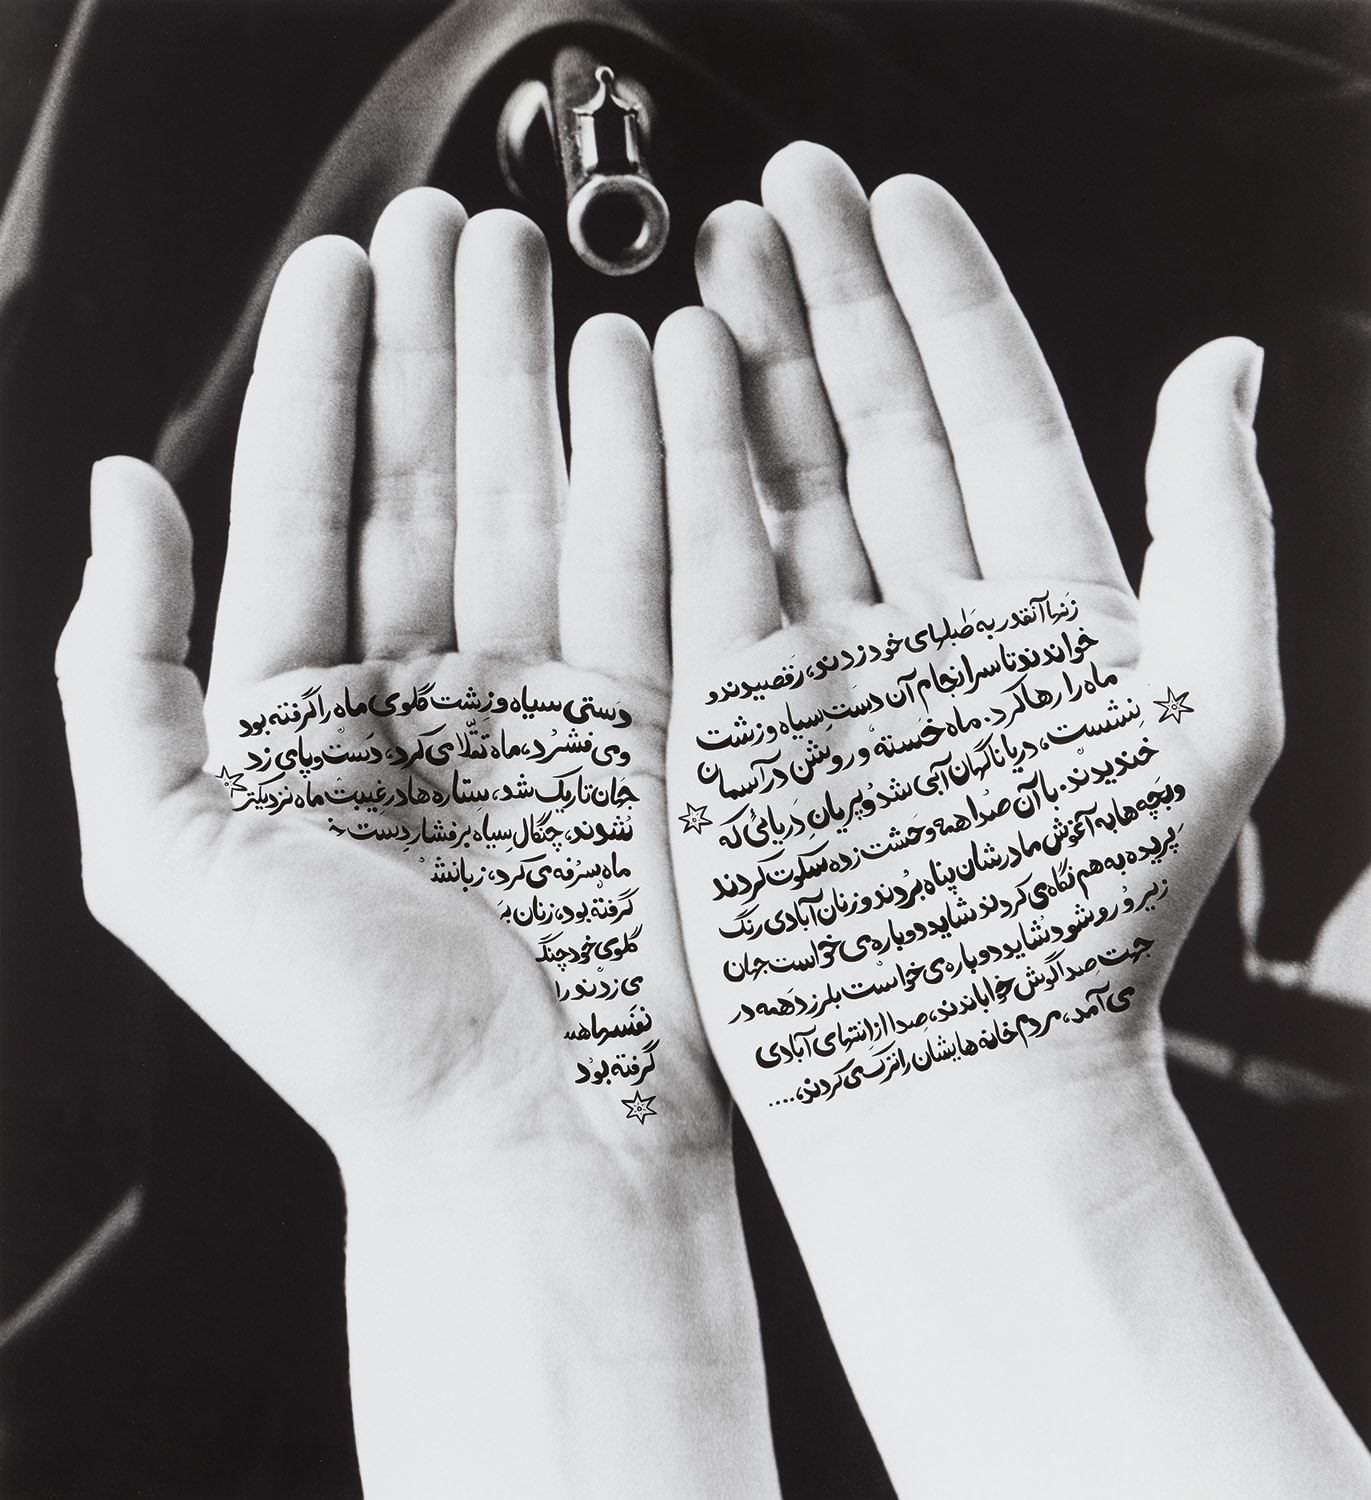 دستی سیاه و زشت گلوی ماه را گرفته بود
و می فشرد، ماه تقلّا می کرد، دست و پای زد
جهان تاریک شد، ستاره ها در غیبت ماه نزدیکتر
شدوند، چنگال سیاه بر فشار دست
ماه سرفه می کرد، زبانش
گرفته بود، زنان بر
گلوی خود چنگ
می زدند را
نفسها هم
گرفته بود
زنها آنقدر به طبلهای خود زدند، رقصیدند و
خواندند تا سرانجام آن دست سیاه و زشت
ماه را رها کرد. ماه خسته و روشن در آسمان
نشست، دریا ناگهان آبی شد و پریان دریائی که
خندیدند. با آن صدا همه وحشت زده سکوت کردند
و بچه ها به آغوش مادرشان پناه بردند و زنان آبادی رنگ
پریده به هم نگاه می کردند شاید دوباره می خواست جهان
زیر و رو شود شاید دوباره می خواست بلرزد همه در
جهت صدا گوش خواباندند، صدا از انتهای آبادی
می آمد، مردم خانه هایشان را ترک می کردند،....